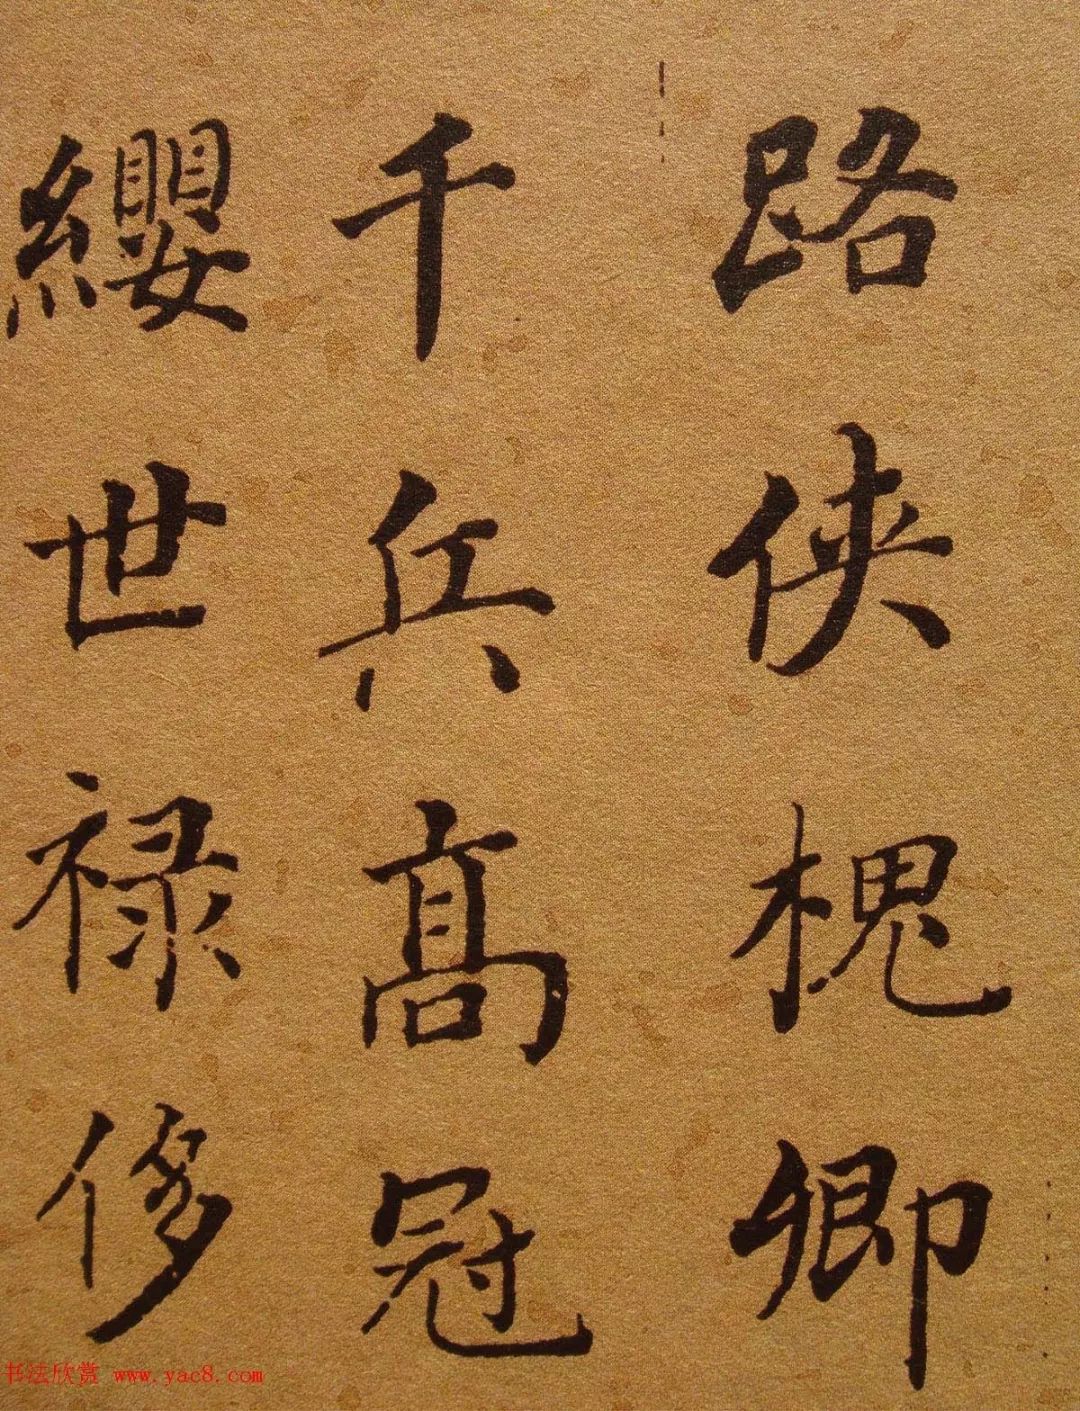 路侠槐卿
千兵高冠
纓世禄侈
书法欣赏 www.yac8.com